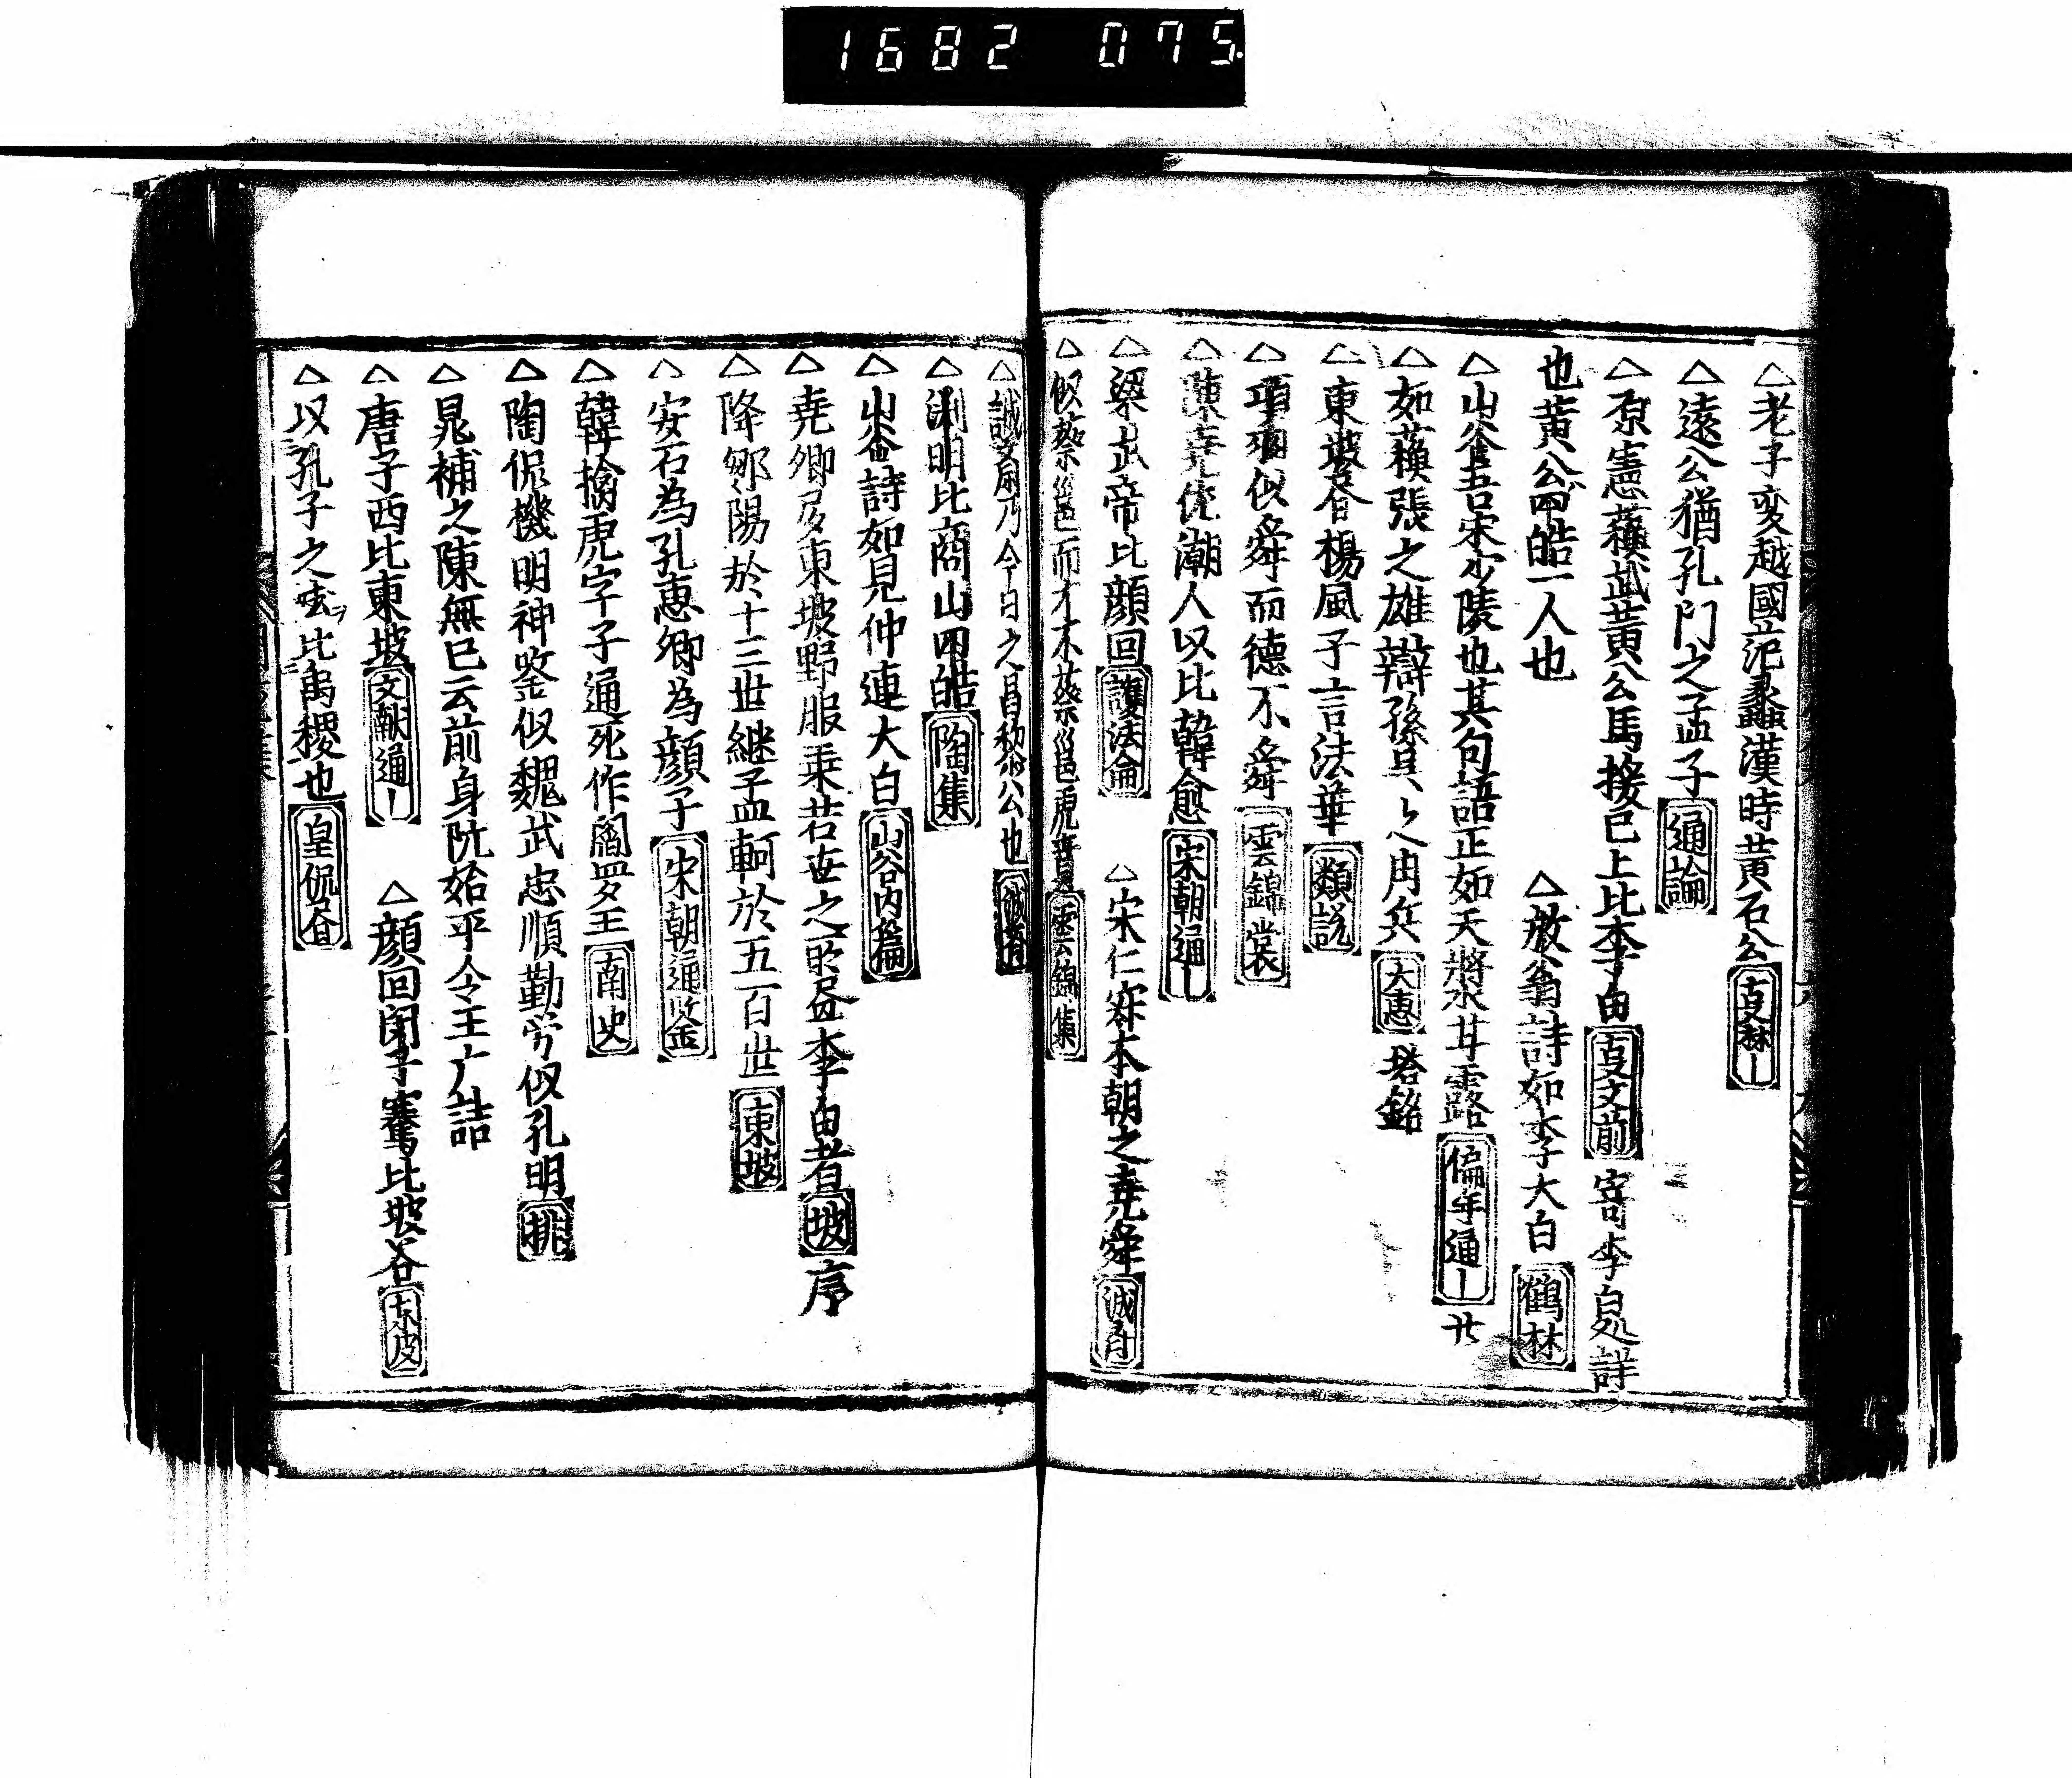 1682 075
△老子変越國范蠡漢時黄石公 古文林｜
△遠公猶孔門之孟子 通論
△原憲蘓武黄公馬接已上比李白 古文前 寄李白処詩
也黄公四皓一人也 △放翁詩如李太白 鶴林
△山谷吾宋少陵也其句語正如天將水甘露 偏年通｜ 廿
△如蘓張之雄辯孫呉之用兵 大惠 塔銘
△東坡谷楊風子言法華 類説
△項羽似舜而德不舜 雲錦裳
△陳堯佐潮人以比韓愈 宋朝通｜
△梁武帝比顔回 護法論 △宋仁宗本朝之堯舜 誠斉
△似蔡邕而才不蔡邕虎賁 雲錦集
△誠斎乃今日之昌黎公也 誠斉
△渕明比商山四皓 陶集
△山谷詩如見仲連太白 山谷内篇
△堯卿及東坡野服乗 世之所盗李白者 坡 序
△降鄒陽於十三世継孟軻於五百世 東坡
△安石為孔惠卿為顔子 宋朝通鑒
△韓擒虎字子通死作閻羅王 南史
△陶侃機明神鑒似魏武忠順勤労似孔明 排
△晁補之陳無已云前身阮始平令王广詰
△唐子西比東坡 文献通｜ △顔回閔子騫比坡谷 東皮
△以孔子之 比禹稷也 皇侃